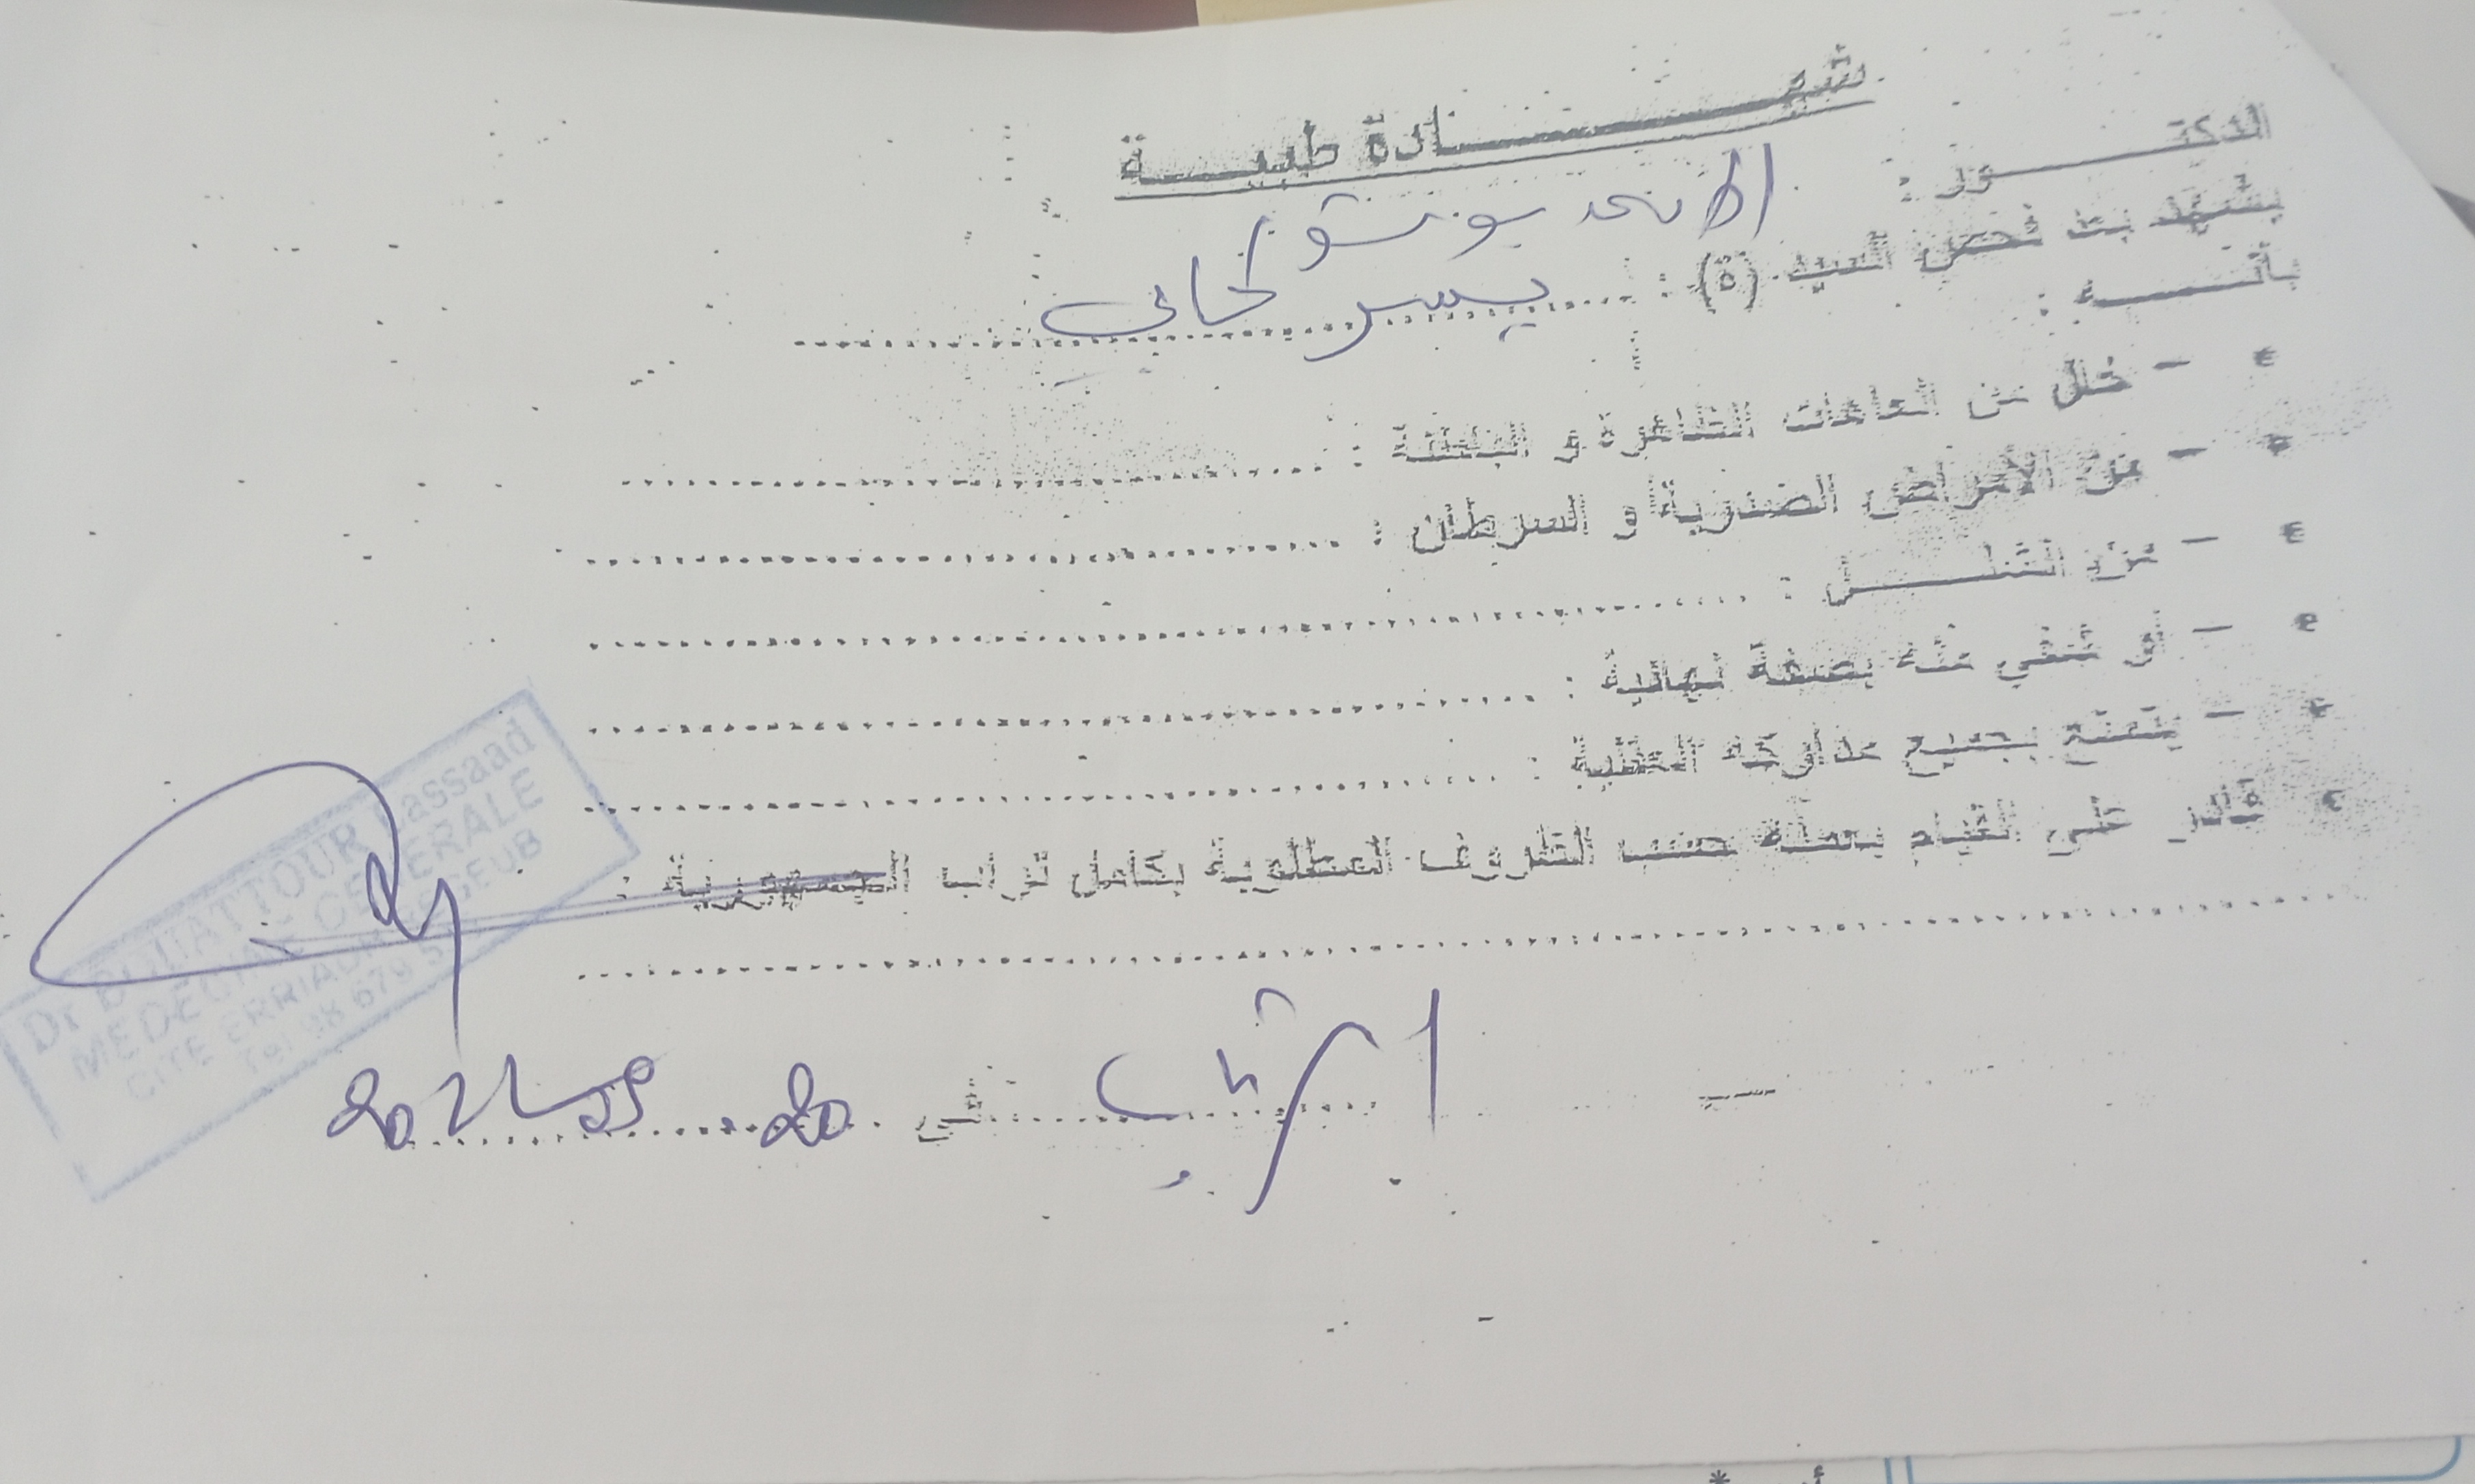 شهـــــــادة طبيـــــة
الدكتـــــور : الاسعد بوعتور
يشهد بعد فحص السيد (ة) : يسر لحاني
بأنـــــه :
- خال من العاهات الظاهرة و الباطنة :
- من الأمراض الصدرية و السرطان :
- من الشلـــــل :
- أو شفي منه بصفة نهائية :
- يتمتع بجميع مداركه العقلية :
قادر على القيام بعمله حسب الظروف المطلوبة بكامل تراب الجمهورية :
الرقاب في 20
Dr BOUATTOUR Lassaad
MEDECINE GENERALE
CITE ERRIADH REGUEB
Tel 98 679